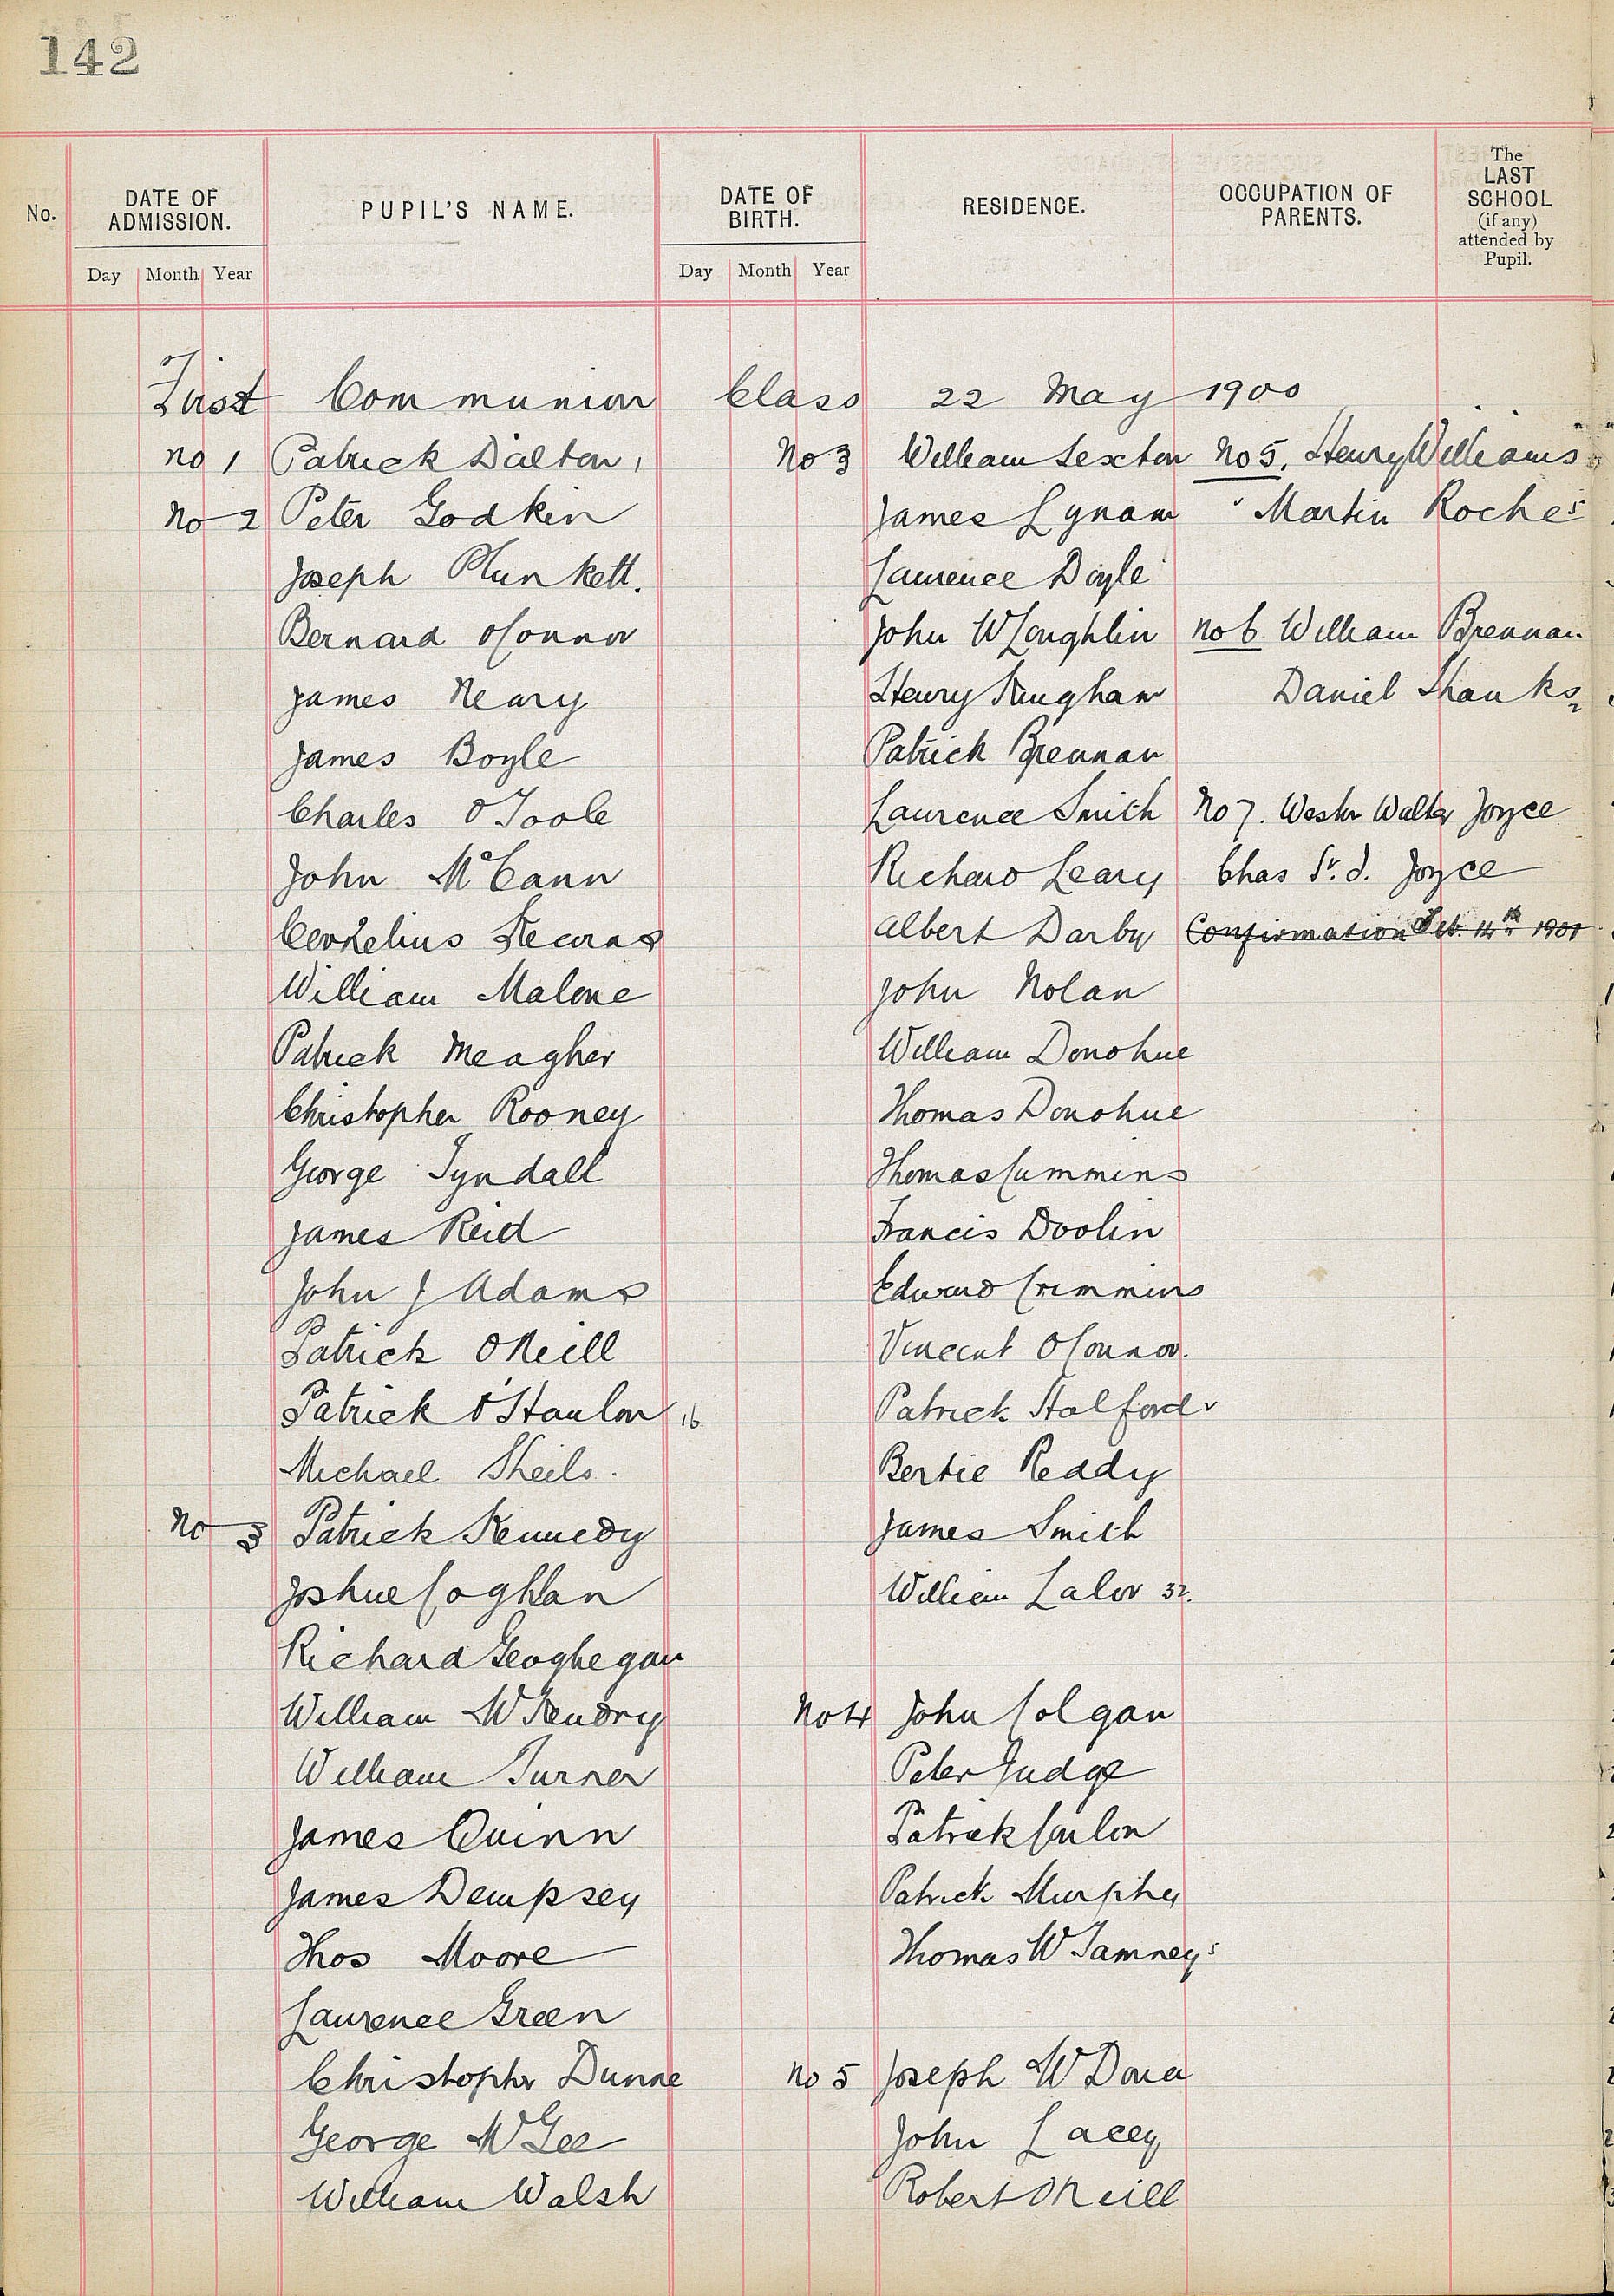 142
No.
DATE OF ADMISSION.
Day Month Year
PUPIL'S NAME.
DATE OF BIRTH.
Day Month Year
RESIDENCE.
OCCUPATION OF PARENTS.
The LAST SCHOOL (if any) attended by Pupil.
First Communion Class 22 May 1900
No 1 Patrick Dalton 1
No 2 Peter Godkin
Joseph Plunkett.
Bernard O'Connor
James Neary
James Boyle
Charles O'Toole
John McCann
Cornelius Kearns
William Malone
Patrick Meagher
Christopher Rooney
George Tyndall
James Reid
John J Adams
Patrick O'Neill
Patrick O'Hanlon 16
Michael Sheils.
No 3 Patrick Kennedy
Joshue Coghlan
Richard Geoghegan
William McKendry
William Turner
James Quinn
James Dempsey
Thos Moore
Laurence Green
Christopher Dunne
George McGee
William Walsh
No 3 William Sexton
James Lynam
Laurence Doyle
John McLoughlin
Henry Kingham
Patrick Brennan
Laurence Smith
Richard Leary
Albert Darby
John Nolan
William Donohue
Thomas Donohue
Thomas Cummins
Francis Doolin
Edward Crimmins
Vincent O'Connor.
Patrick Halford
Bertie Reddy
James Smith
William Lalor 32.
No 4 John Colgan
Peter Judge
Patrick Conlon
Patrick Murphy
Thomas McTamney 5
No 5 Joseph McDona
John Lacey
Robert O'Neill
No 5. Henry Williams
Martin Roche
No 6 William Brennan
Daniel Shanks 2
No 7. Walter Joyce
Chas St. J. Joyce
Confirmation Feb. 14th 1901